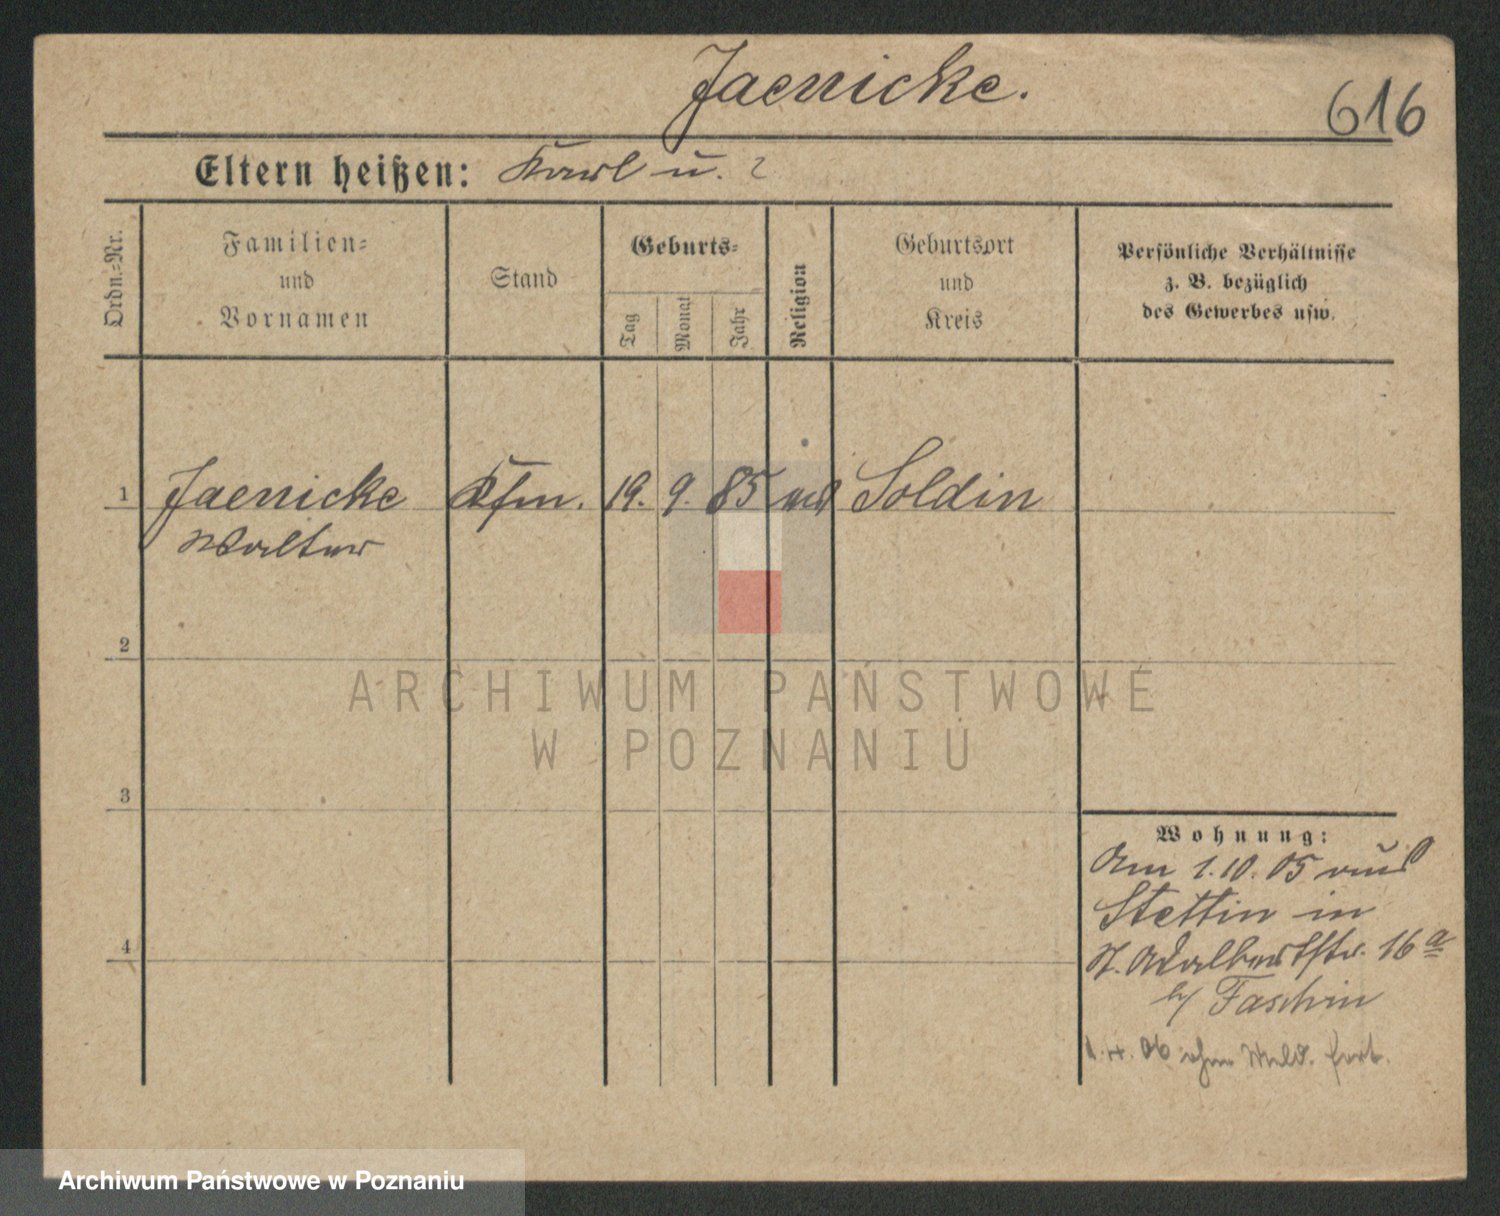 Jaenicke.
616
Eltern heißen: Karl u. ?
Ordn.=Nr.
Familien=
und
Vornamen
Stand
Geburts=
Tag
Monat
Jahr
Religion
Geburtsort
und
Kreis
Persönliche Verhältnisse
z. B. bezüglich
des Gewerbes usw.
1 Jaenicke Kfm. 19. 9. 85 Soldin
Walter
2
3
4
ARCHIWUM PAŃSTWOWE
W POZNANIU
Wohnung:
Am 1.10.05 aus
Stettin in
St. Adalbertstr. 16a
b/ Faschin
06 ohne Meld. fort.
Archiwum Państwowe w Poznaniu